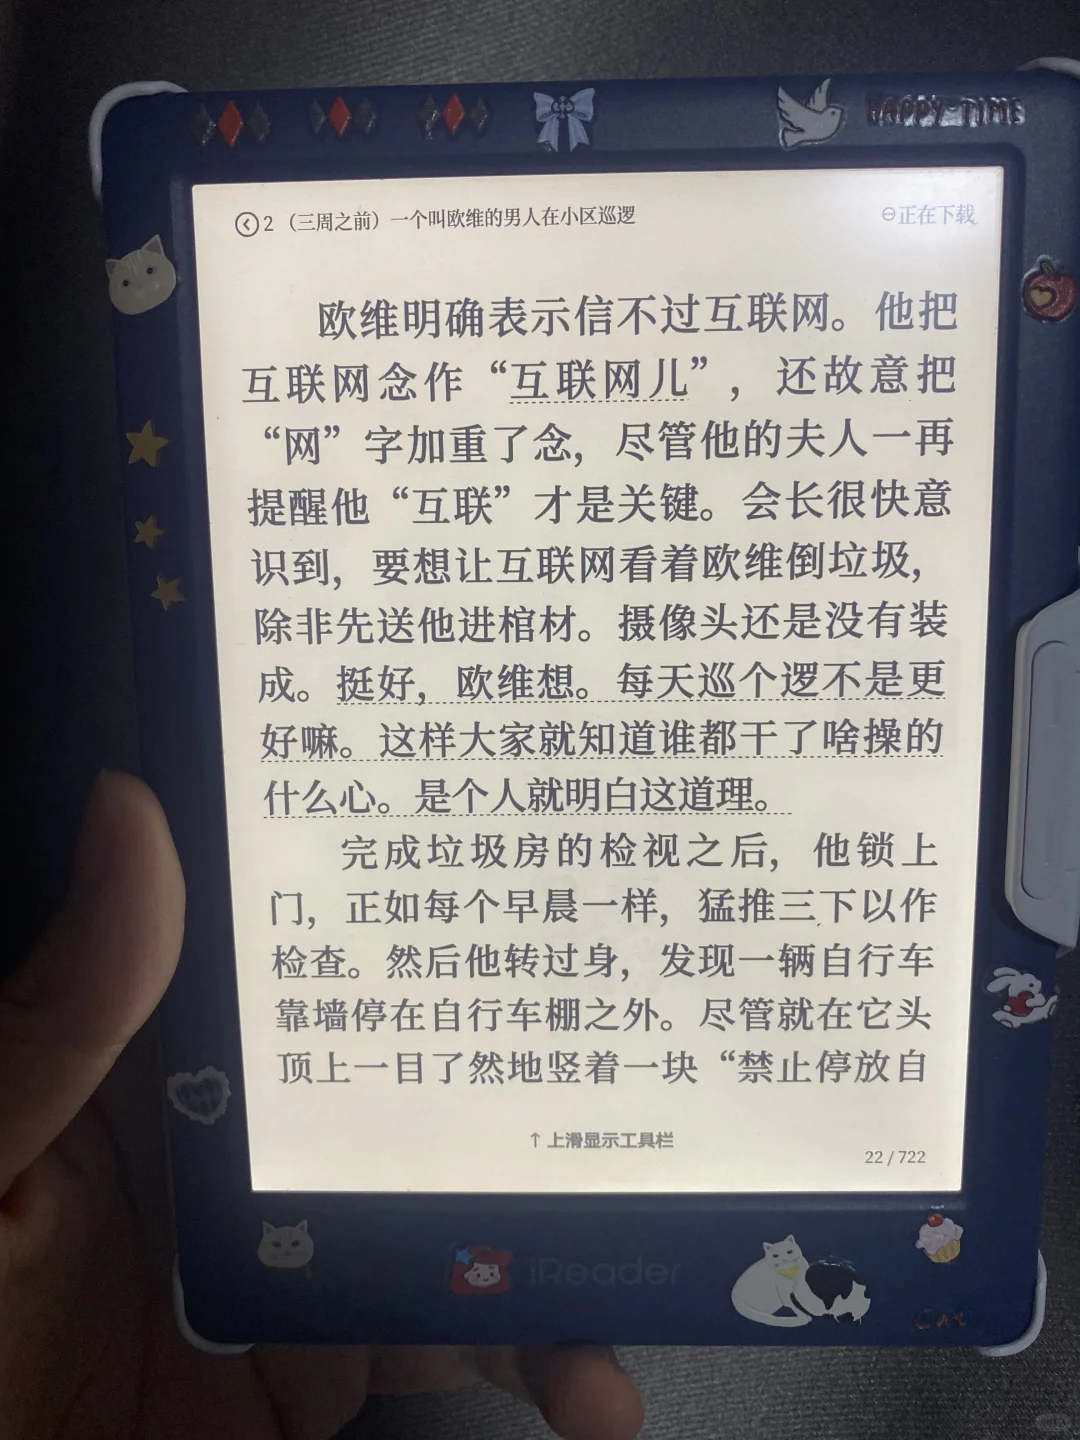 HAPPY TIME
2 （三周之前）一个叫欧维的男人在小区巡逻
正在下载
欧维明确表示信不过互联网。他把
互联网念作“互联网儿”，还故意把
“网”字加重了念，尽管他的夫人一再
提醒他“互联”才是关键。会长很快意
识到，要想让互联网看着欧维倒垃圾，
除非先送他进棺材。摄像头还是没有装
成。挺好，欧维想。每天巡个逻不是更
好嘛。这样大家就知道谁都干了啥操的
什么心。是个人就明白这道理。
完成垃圾房的检视之后，他锁上
门，正如每个早晨一样，猛推三下以作
检查。然后他转过身，发现一辆自行车
靠墙停在自行车棚之外。尽管就在它头
顶上一目了然地竖着一块“禁止停放自
↑ 上滑显示工具栏
22 / 722
iReader